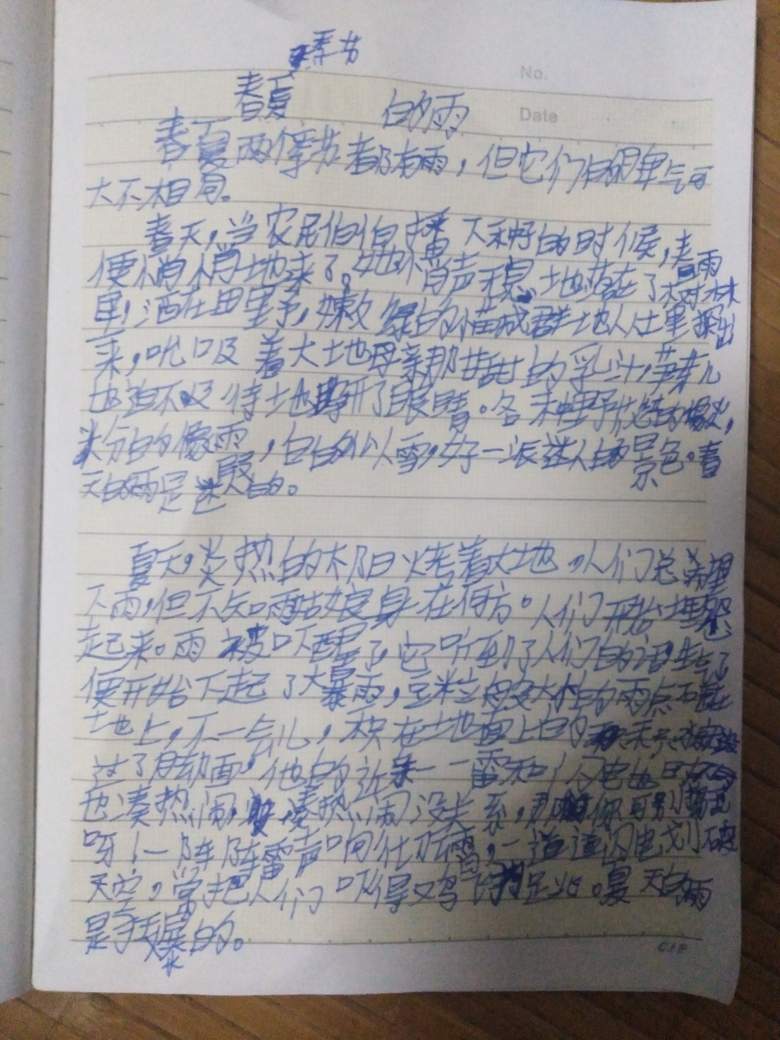 季节
No.
春夏 的雨
Date
春夏两季节都有雨，但它们的脾气可
大不相同。
春天，当农民伯伯播下种子的时候，春雨
便悄悄地来了。她悄声无息地落在了树林
里，洒在田野，嫩绿的苗成群地从土里探出
来，吮吸着大地母亲那甘甜的乳汁，芽儿
也迫不及待地睁开了眼睛。各种野花
粉的像雨，白的似雪，好一派迷人的景色。春
天的雨是的。
夏天，炎热的太阳火烤着大地，人们总希望
下雨，但不知雨姑娘身在何方。人们开始埋怨
起来。雨被吓醒了，它听到了人们的话生气了
便开始下起了大暴雨，豆粒般大的雨点石砸在
地上，不一会儿，积在地面上的雨
过了脚面，他的近一雷和闪电也
也凑热闹，凑热闹没关系，你可别
呀！一阵阵雷声响彻云霄，一道道闪电划破
天空，常把人们吓得。夏天的雨
是狂暴的。